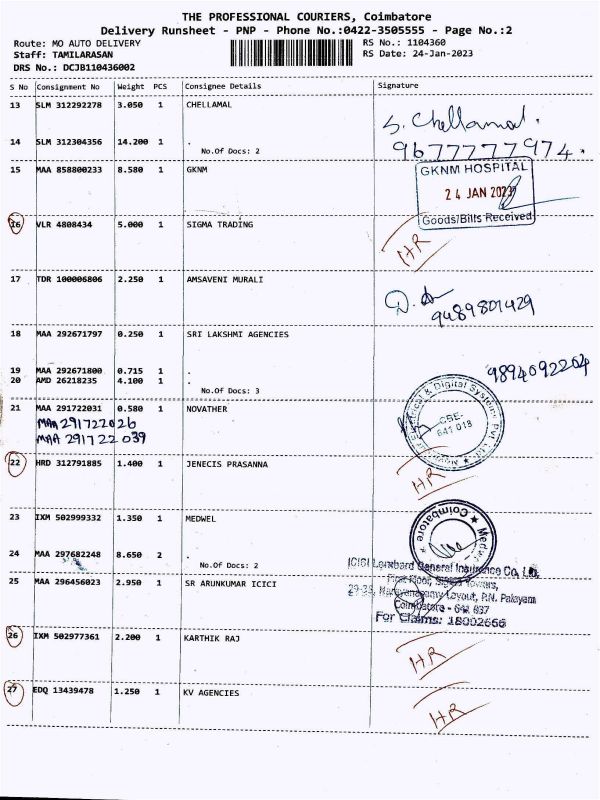 THE PROFESSIONAL COURIERS, Coimbatore
Delivery Runsheet - PNP - Phone No.:0422-3505555 - Page No.:2
Route: MO AUTO DELIVERY RS No.: 1104360
Staff: TAMILARASAN RS Date: 24-Jan-2023
DRS No.: DCJB110436002
S No Consignment No Weight PCS Consignee Details Signature
13 SLM 312292278 3.050 1 CHELLAMAL
S. Chellamal.
14 SLM 312304356 14.200 1 .
No.Of Docs: 2
9677777974.
15 MAA 858800233 8.580 1 GKNM
GKNM HOSPITAL
24 JAN 2023
Goods/Bills Received
16 VLR 4808434 5.000 1 SIGMA TRADING
HR
17 TDR 100006806 2.250 1 AMSAVENI MURALI
9489801429
18 MAA 292671797 0.250 1 SRI LAKSHMI AGENCIES
19 MAA 292671800 0.715 1 .
20 AMD 26218235 4.100 1 .
No.Of Docs: 3
9894092204
21 MAA 291722031 0.580 1 NOVATHER
MAA 291722026
MAA 291722039
Electrical & Digital Systems Pvt. Ltd.
CBE-
641 018
22 HRD 312791885 1.400 1 JENECIS PRASANNA
HR
23 IXM 502999332 1.350 1 MEDWEL
24 MAA 297682248 8.650 2 .
No.Of Docs: 2
Medwel
Coimbatore
25 MAA 296456023 2.950 1 SR ARUNKUMAR ICICI
ICICI Lombard General Insurance Co. Ltd.
First Floor, Towers,
Layout, P.N. Palayam
Coimbatore - 641 037
For Claims: 18002666
26 IXM 502977361 2.200 1 KARTHIK RAJ
HR
27 EDQ 13439478 1.250 1 KV AGENCIES
HR